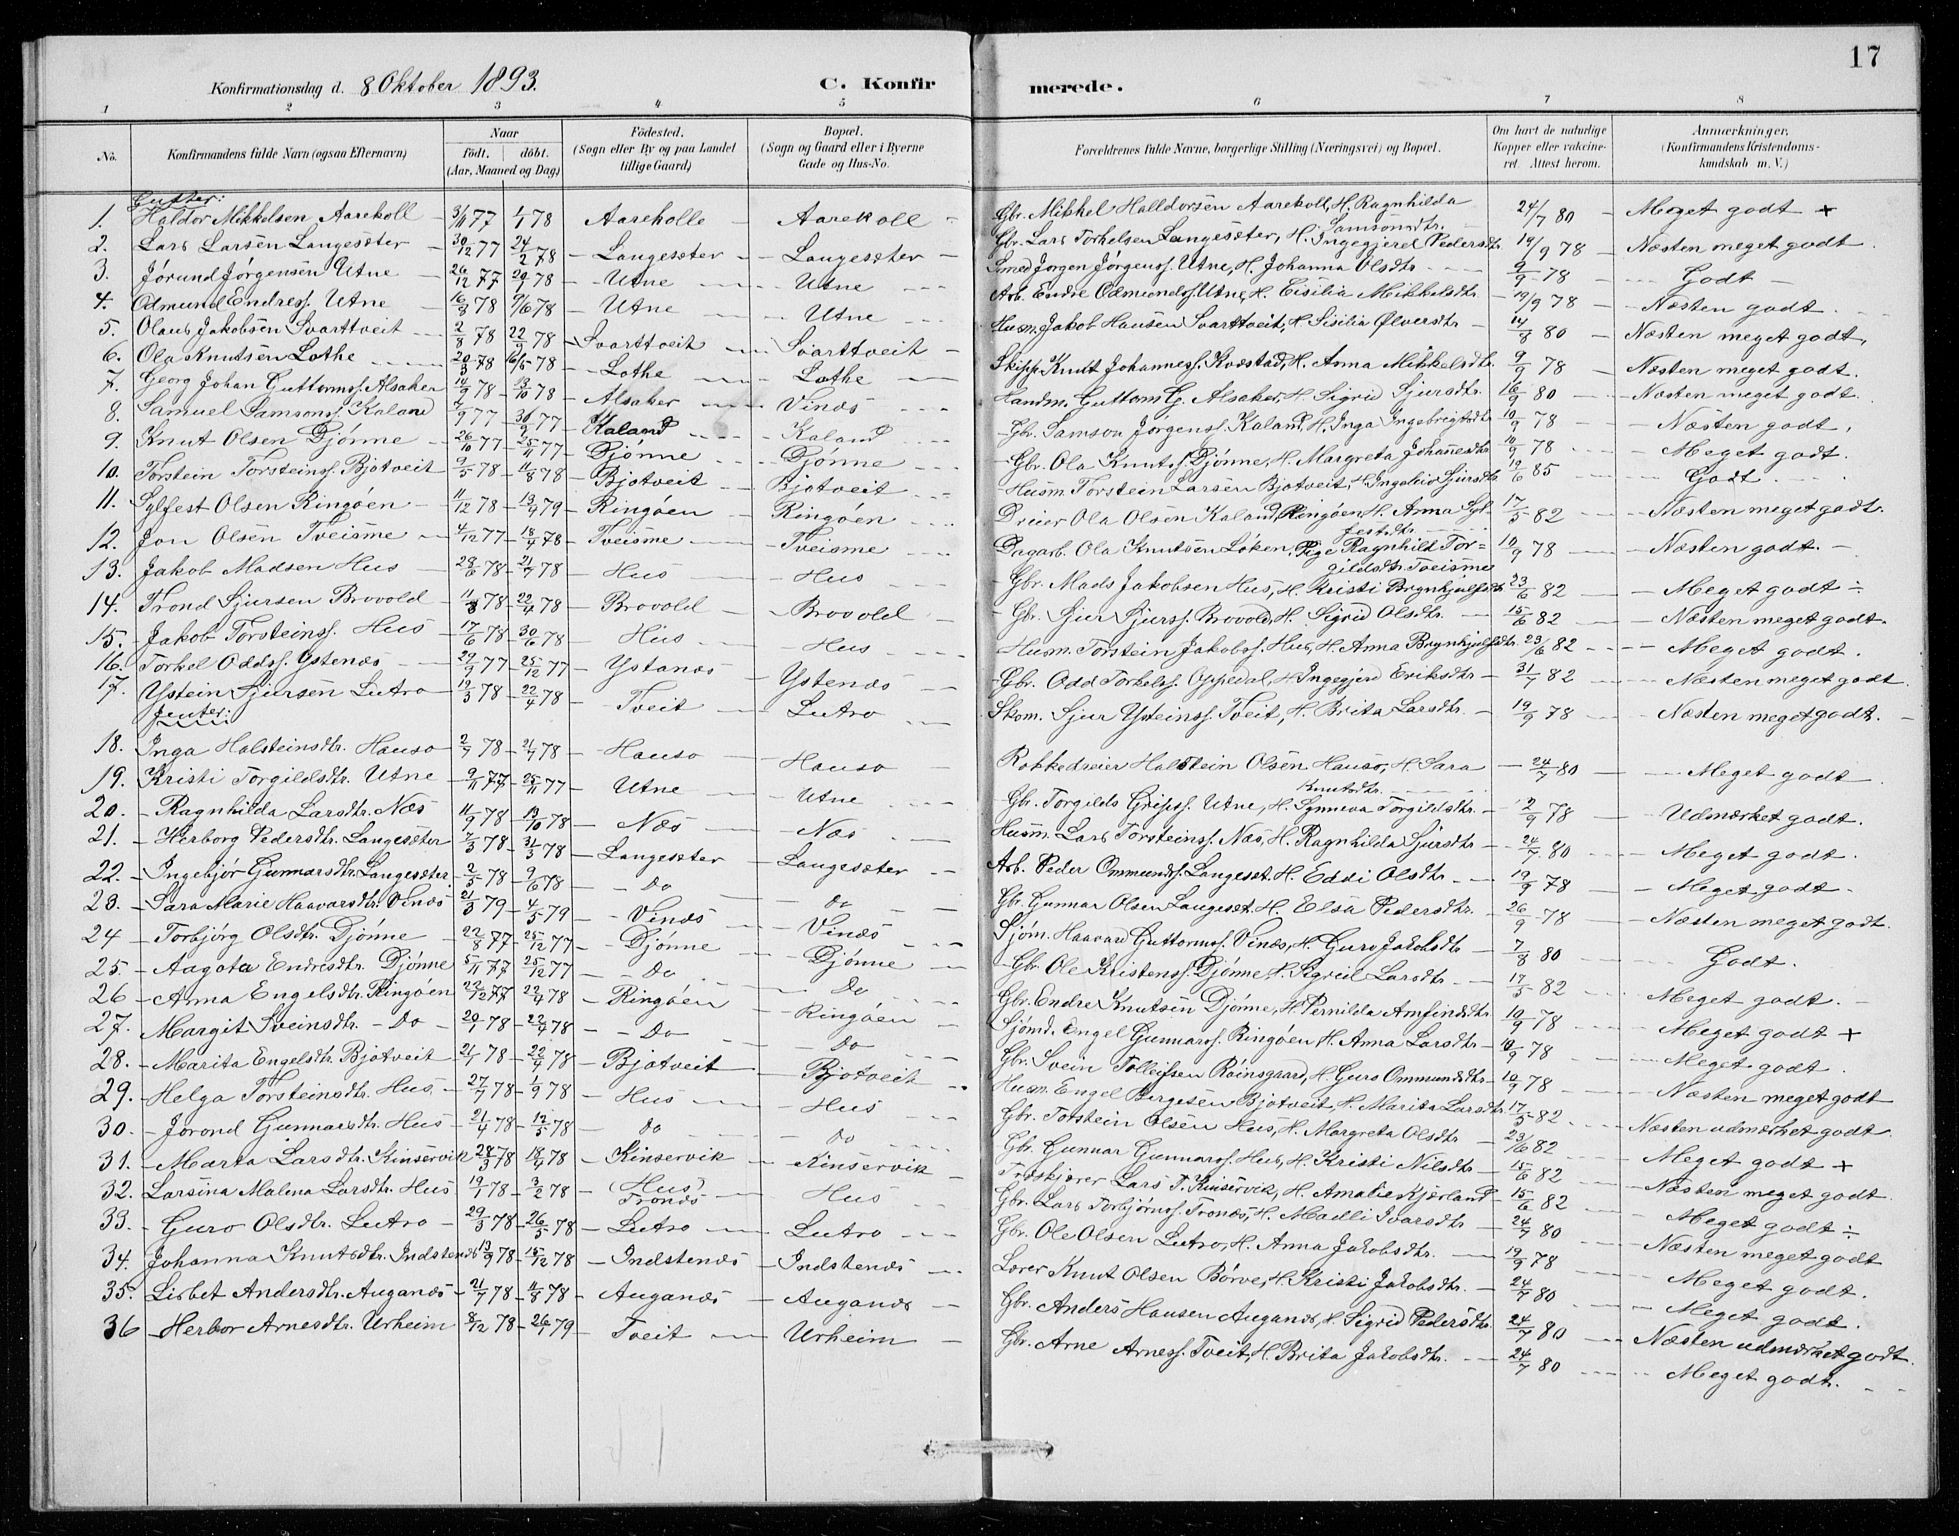 17
Konfirmationsdag d. 8 Oktober 1893.
C. Konfirmerede.
1 2 3 4 5 6 7 8
No. Konfirmandens fulde Navn (ogsaa Efternavn) Naar født. døbt. (Aar, Maaned og Dag) Fødested. (Sogn eller By og paa Landet tillige Gaard) Bopæl. (Sogn og Gaard eller i Byerne Gade og Hus-No. Forældrenes fulde Navne, borgerlige Stilling (Næringsvei) og Bopæl. Om havt de naturlige Kopper eller vakcineret. Attest herom. Anmærkninger. (Konfirmandens Kristendomskundskab m. V.)
Gutter:
1. Haldor Mikkelsen Aarekoll 3/11 77 1/1 78 Aarekolle Aarekoll Gbr. Mikkel Halldorsen Aarekoll, H. Ragnhilda Samsonsdtr. 24/7 80 Meget godt +
2. Lars Larsen Langesæter 30/12 77 24/2 78 Langesæter Langesæter Gbr. Lars Torkelsen Langesæter, H. Ingegjerd Pedersdtr. 19/9 78 Næsten meget godt
3. Jørund Jørgensen Utne 26/12 77 20/1 78 Utne Utne Smed Jørgen Jørgenss. Utne, H. Johanna Olsdtr. 9/9 78 Godt
4. Odmund Endress. Utne 16/3 78 9/6 78 Utne Utne Arb. Endre Odmundss. Utne, H. Cisilia Mikkelsdtr. 19/9 78 Næsten godt.
5. Olaus Jakobsen Svarttveit 2/8 78 22/9 78 Svarttveit Svarttveit Husm. Jakob Hansen Svarttveit, H. Sisilia Ølversdtr. 14/8 80 Næsten meget godt.
6. Ola Knutsen Lothe 20/3 78 16/5 78 Lothe Lothe Skipp. Knut Johanness. Kvæstad, H. Anna Mikkelsdtr. 9/9 78 Næsten meget godt.
7. Georg Johan Guttormss. Alsaker 14/9 78 13/10 78 Alsaker Vinæs Handm. Guttorm G. Alsaker, H. Sigrid Sjursdtr. 16/9 80 Næsten meget godt.
8. Samuel Samsonss. Kaland 4/9 77 30/9 77 Kaland Kaland Gbr. Samson Jørgenss. Kaland, H. Inga Ingebrigtsdtr. 10/9 78 Næsten godt.
9. Knut Olsen Djønne 26/10 77 25/11 77 Djønne Djønne Gbr. Ola Knutss. Djønne, H. Margreta Johannesdtr. 10/9 78 Meget godt.
10. Torstein Torsteinss. Bjotveit 9/5 78 11/8 78 Bjotveit Bjotveit Husm. Torstein Larsen Bjotveit, H. Ingeleiv Sjursdtr. 19/6 85 Godt
11. Sylfest Olsen Ringøen 11/12 78 13/4 79 Ringøen Ringøen Dreier Ola Olsen Kaland, Ringøen, H. Anna Sylfestdtr. 17/5 82 Næsten meget godt.
12. Jon Olsen Tveisme 4/12 77 18/4 78 Tveisme Tveisme Dagarb. Ola Knutsen Løken, Pige Ragnhild Torgildsdtr. Tveisme 10/9 78 Næsten godt.
13. Jakob Madsen Hus 28/6 78 21/7 78 Hus Hus Gbr. Mads Jakobsen Hus, H. Kristi Brynhjulfsdtr. 23/6 82 Meget godt ÷
14. Trond Sjursen Brovold 11/3 78 22/4 78 Brovold Brovold Gbr. Sjur Sjurss. Brovold, H. Sigrid Olsdtr. 15/6 82 Næsten meget godt.
15. Jakob Torsteinss. Hus 17/6 78 30/6 78 Hus Hus Husm. Torstein Jakobss. Hus, H. Anna Brynhjulfsdtr. 23/6 82 Meget godt.
16. Torkel Oddss. Ystenæs 29/9 77 25/12 77 Ystanæs Ystenæs Gbr. Odd Torkelss. Oppedal, H. Ingegjerd Eriksdtr. 31/7 82 Næsten meget godt.
17. Ystein Sjursen Lutro 19/3 78 22/4 78 Tveit Lutro Skom. Sjur Ysteinss. Tveit, H. Brita Larsdtr. 19/9 78 Næsten meget godt.
Jenter:
18. Inga Halsteinsdtr. Hauso 2/7 78 21/7 78 Hauso Hauso Rokkedreier Halstein Olsen Hauso, H. Sara Knutsdtr. 24/7 80 Meget godt
19. Kristi Torgildsdtr. Utne 9/11 77 25/11 77 Utne Utne Gbr. Torgilds Gripss. Utne, H. Synneva Torgildsdtr. 12/9 78 Udmærket godt.
20. Ragnhilda Larsdtr. Næs 11/9 78 13/10 78 Næs Næs Husm. Lars Torsteinss. Næs, H. Ragnhilda Sjursdtr. 24/7 80 Meget godt.
21. Herborg Pedersdtr. Langesæter 7/3 78 31/3 78 Langesæter Langesæter Arb. Peder Ommundss. Langesæt. H. Eddi Olsdtr. 19/9 78 Meget godt.
22. Ingebjør Gunnarsdtr. Langesæter 2/5 78 9/6 78 Do Do Gbr. Gunnar Olsen Langesæt. H. Elsa Pedersdtr. 26/9 78 Næsten meget godt.
23. Sara Marie Haavarsdtr. Vinæs 21/3 79 4/5 79 Vinæs Vinæs Sjøm. Haavard Guttormss. Vinæs, H. Guro Jakobsdtr. 7/8 80 Godt.
24 Torbjørg Olsdtr. Djønne 22/8 77 25/12 77 Djønne Djønne Gbr. Ole Kristenss. Djønne H. Sigrid Larsdtr. 17/5 82 Meget godt.
25. Aagota Endresdtr. Djønne 5/11 77 25/12 77 Do Do Gbr. Endre Knutsen Djønne, H. Pernilda Amfindsdtr. 10/9 78 Meget godt +
26 Anna Engelsdtr. Ringøen 22/12 77 22/4 78 Ringøen Ringøen Sjømd. Engel Gunnarss. Ringøen H. Anna Larsdtr. 10/9 78 Meget godt.
27. Margit Sveinsdtr. Do 20/1 78 22/4 78 Do Do Gbr. Svein Tolleifsen Røinsgaard, H. Guro Ommundsdtr. 10/9 78 Næsten meget godt
28. Marita Engelsdtr. Bjotveit 21/1 78 22/4 78 Bjotveit Bjotveit Husm. Engel Børgesen Bjotveit, H. Marita Larsdtr. 17/5 82 Næsten udmærket godt.
29. Helga Torsteinsdtr. Hus 27/7 78 1/9 78 Hus Hus Gbr. Torstein Olsen Hus, H. Margreta Olsdtr. 23/6 82 Meget godt +
30. Jorond Gunnarsdtr. Hus 21/4 78 12/5 78 Do Do Gbr. Gunnar Gunnarss. Hus, H. Kristi Nilsdtr. 15/6 82 Næsten meget godt.
31. Marta Larsdtr. Kinservik 28/3 78 18/4 78 Kinservik Kinservik Lars T. Kinservik, H. Amalie Kjerland 15/6 82 Meget godt ÷
32. Larsina Malena Larsdtr. Hus 19/1 78 3/2 78 (Hus) Tronæs Hus Gbr. Lars Torbjørnss. Tronæs, H. Madli Ivarsdtr. 24/7 80 Næsten meget godt
33. Guro Olsdtr. Lutro 29/3 78 26/5 78 Lutro Lutro Gbr. Ole Olsen Lutro, H. Anna Jakobsdtr. 19/9 78 Meget godt.
34. Johanna Knutsdtr. Indstenæs 13/9 78 15/12 78 Indstenæs Indstenæs Lærer Knut Olsen Børve, H. Kristi Jakobsdtr. 24/7 80 Meget godt.
35. Lisbet Andersdtr. Auganæs 21/7 78 11/8 78 Auganæs Auganæs Gbr. Anders Hansen Auganæs, H. Sigrid Pedersdtr. 24/7 80 Næsten udmærket godt.
36 Herbor Arnesdtr. Urheim 8/12 78 26/1 79 Tveit Urheim Gbr. Arne Arness. Tveit, H. Brita Jakobsdtr. 24/7 80 Meget godt.